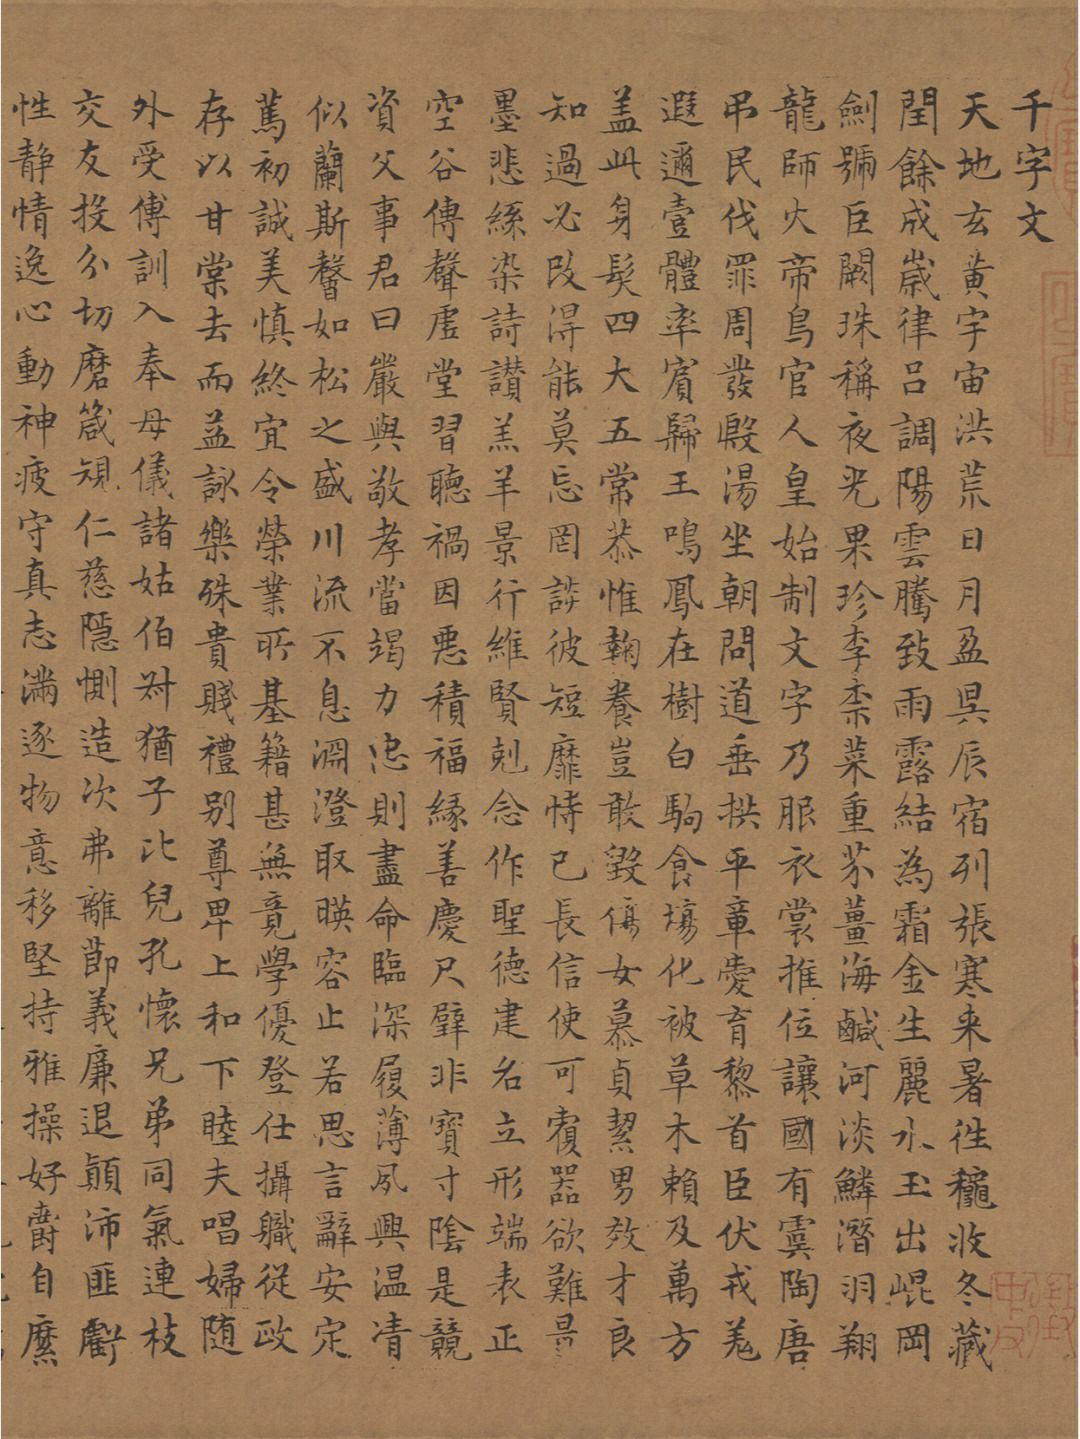 千字文
天地玄黃宇宙洪荒日月盈昃辰宿列張寒来暑往穐收冬藏
閏餘成歲律呂調陽雲騰致雨露結為霜金生麗水玉出崐岡
劍號巨闕珠稱夜光果珍李柰菜重芥薑海鹹河淡鱗潛羽翔
龍師火帝鳥官人皇始制文字乃服衣裳推位讓國有虞陶唐
弔民伐罪周發殷湯坐朝問道垂拱平章愛育黎首臣伏戎羌
遐邇壹體率賓歸王鳴鳳在樹白駒食場化被草木賴及萬方
盖此身髮四大五常恭惟鞠養豈敢毀傷女慕貞絜男效才良
知過必改得能莫忘罔談彼短靡恃己長信使可覆器欲難量
墨悲絲染詩讃羔羊景行維賢剋念作聖德建名立形端表正
空谷傳聲虛堂習聽禍因惡積福緣善慶尺璧非寶寸陰是競
資父事君曰嚴與敬孝當竭力忠則盡命臨深履薄夙興温凊
似蘭斯馨如松之盛川流不息淵澄取暎容止若思言辭安定
篤初誠美慎終宜令榮業所基籍甚無竟學優登仕攝職從政
存以甘棠去而益詠樂殊貴賤禮別尊卑上和下睦夫唱婦随
外受傅訓入奉母儀諸姑伯叔猶子比兒孔懷兄弟同氣連枝
交友投分切磨箴規仁慈隱惻造次弗離節義廉退顛沛匪虧
性静情逸心動神疲守真志滿逐物意移堅持雅操好爵自縻